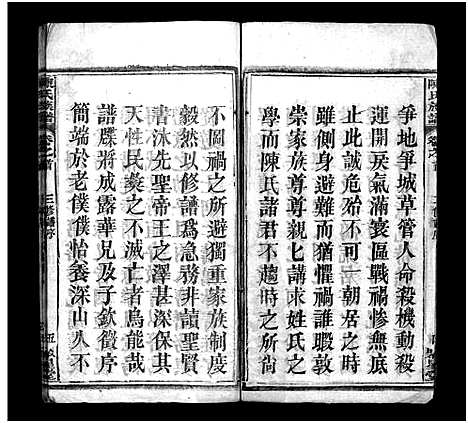 爭地爭城草管人命殺機動殺
運開戾氣滿寰區戰禍慘無底
止此稱雄彼不可一朝居之時
勢側身避難而猶懼禍誰敦
崇家族尊親匕講求姓氏之
學而陳氏諸君不趨時之所
不圖禍之所避獨重家族制度
毅然以修譜為急務非讀聖賢
書沐先聖帝王之澤甚深保其
天性民彝之不滅亡者烏能哉
譜牒將成露華兄及子欽徵序
簡端於老僕僕怡養深山人不
陳氏族譜
卷之首
三修譜序